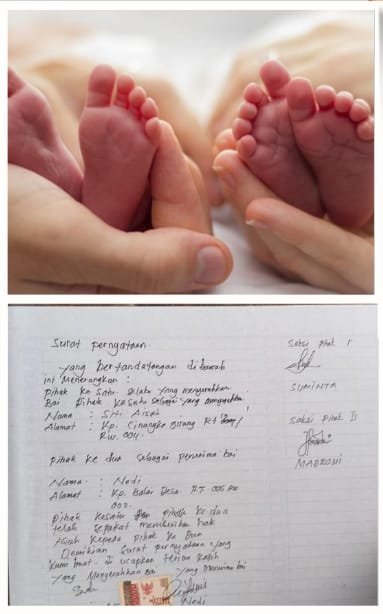 Surat pernyataan.
yang bertandatangan dibawah
ini Menerangkan :
Pihak Ke Satu Selaku yang menyerahkan
Bai Pihak Kesatu sebagai yang menyerahkan
Nama : Siti Aisah
Alamat : Kp. Cinangka girang RT
RW. 004.
Pihak ke dua sebagai penerima bai
Nama : Nedi
Alamat : Kp. Balai Desa. RT. 006 RW
002.
Pihak Kesatu dan Pihak Ke dua
telah sepakat memberikan hak
Asuh Kepada Pihak Ke Dua
Demikian surat pernyataan yang
Kami buat. di ucapkan terima Kasih
Yang Menyerahkan Bai Yang menerima bai
Nedi
Saksi Pihak I
SUMINTA
Saksi Pihak II
MADRONI